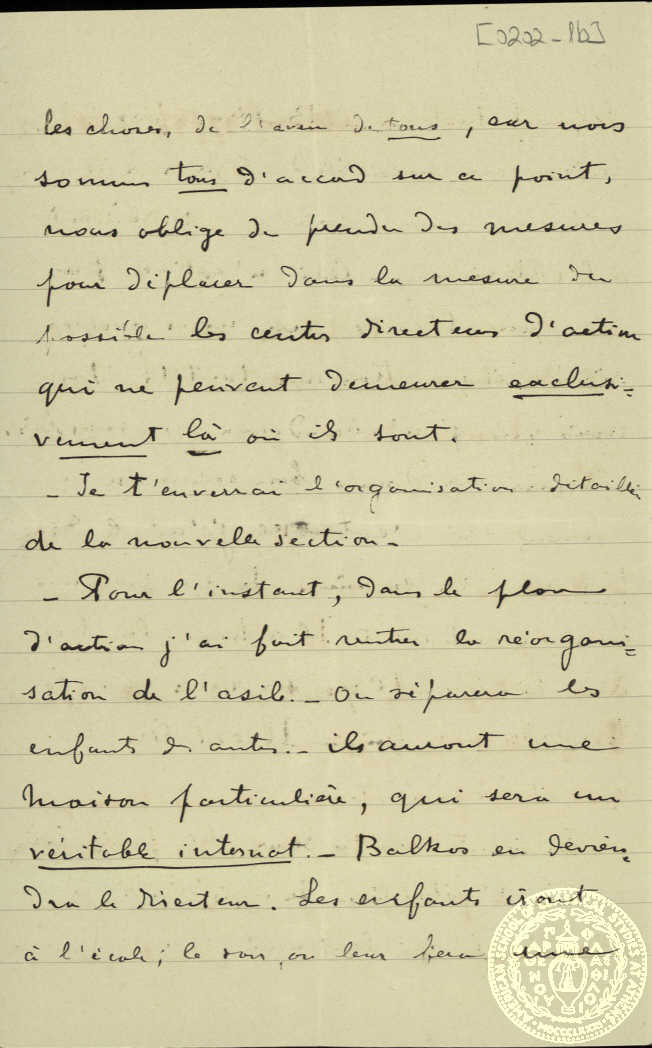 [2202-1b]
les choses, de l'aveu de tous, car nous
sommes tous d'accord sur ce point,
nous oblige de prendre des mesures
pour déplacer dans la mesure du
possible les centres directeurs d'action
qui ne peuvent demeurer exclusi=
vement là où ils sont.
- Je t'enverrai l'organisation détaillée
de la nouvelle section -
- Pour l'instant, dans le plan
d'action j'ai fait rentrer la réorgani=
sation de l'asile. - On séparera les
enfants des autres. - ils auront une
maison particulière, qui sera un
véritable internat. - Balkos en devien=
dra le directeur. Les enfants iront
à l'école ; le soir, on leur fera une
AMERICAN SCHOOL OF CLASSICAL STUDIES AT ATHENS
MDCCCLXXXI